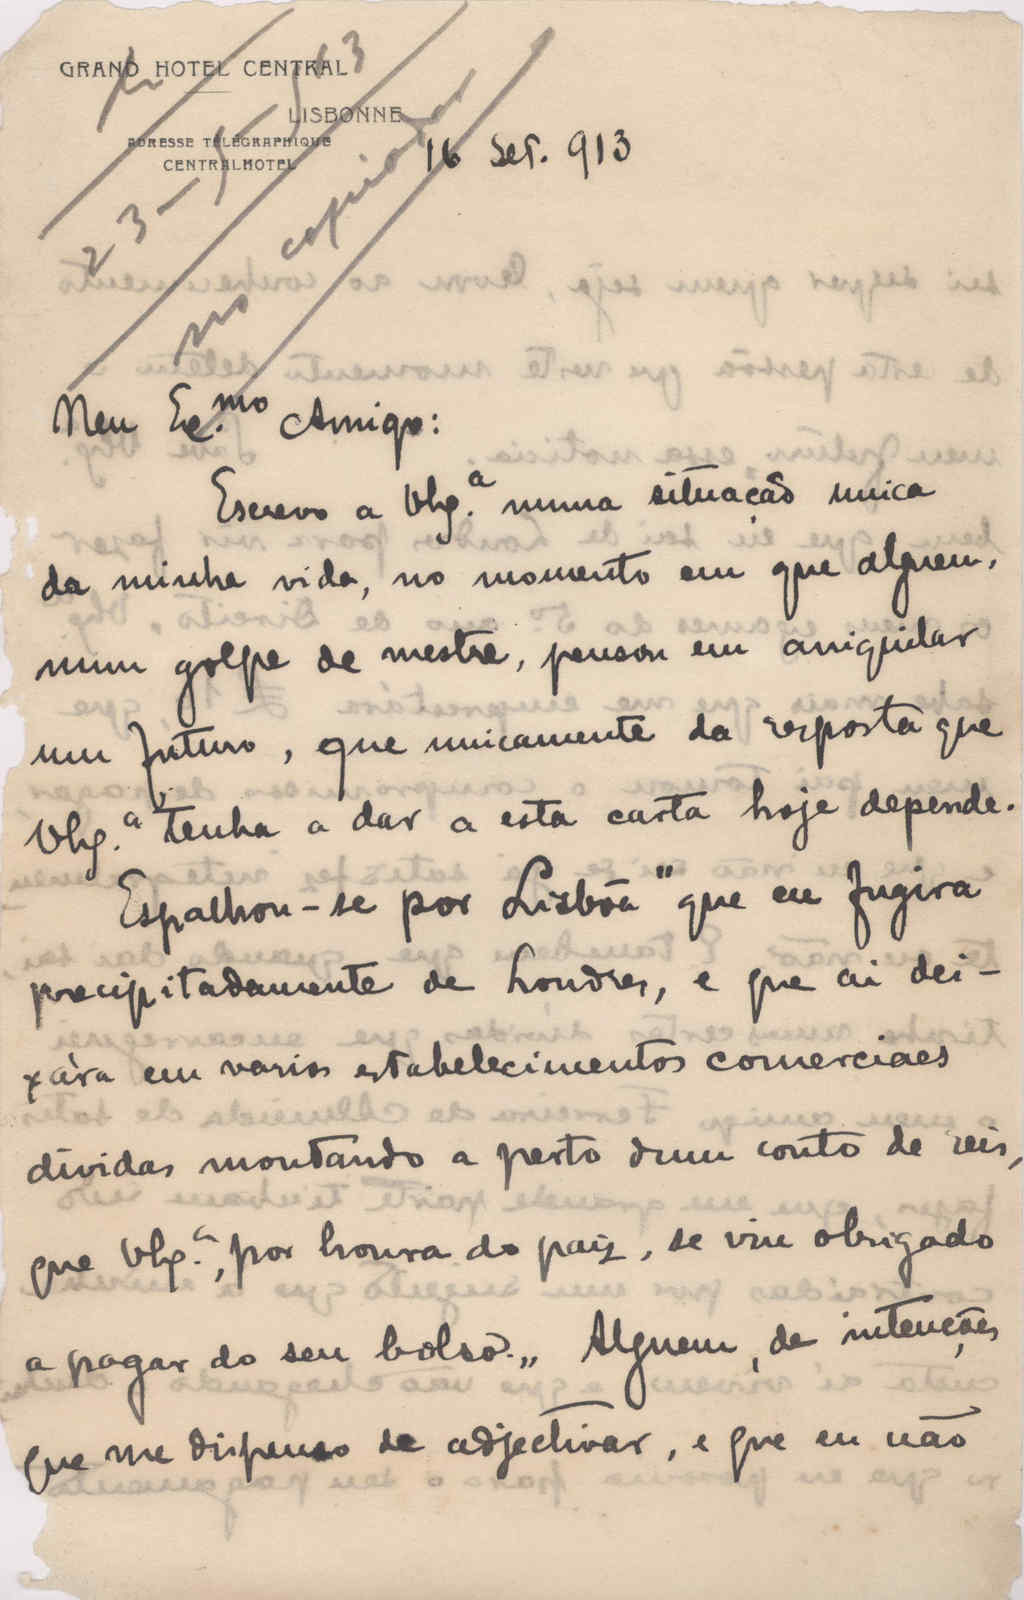 GRAND HOTEL CENTRAL
LISBONNE
ADRESSE TÉLÉGRAPHIQUE
CENTRALHOTEL
16 Set. 913
no copiador
Meu Ex.mo Amigo:
Escrevo a VEx.a numa situação unica
da minha vida, no momento em que alguem,
num golpe de mestre, pensou em aniquilar
um futuro, que unicamente da resposta que
VEx.a tenha a dar a esta carta hoje depende.
Espalhou-se por Lisbôa "que eu fugira
precipitadamente de Londres, e que ai dei-
xára em varios estabelecimentos comerciaes
dividas montando a perto dum conto de reis,
que VEx.a, por honra do paiz, se viu obrigado
a pagar do seu bolso.„ Alguem, de intenções
que me dispenso de adjectivar, e que eu não